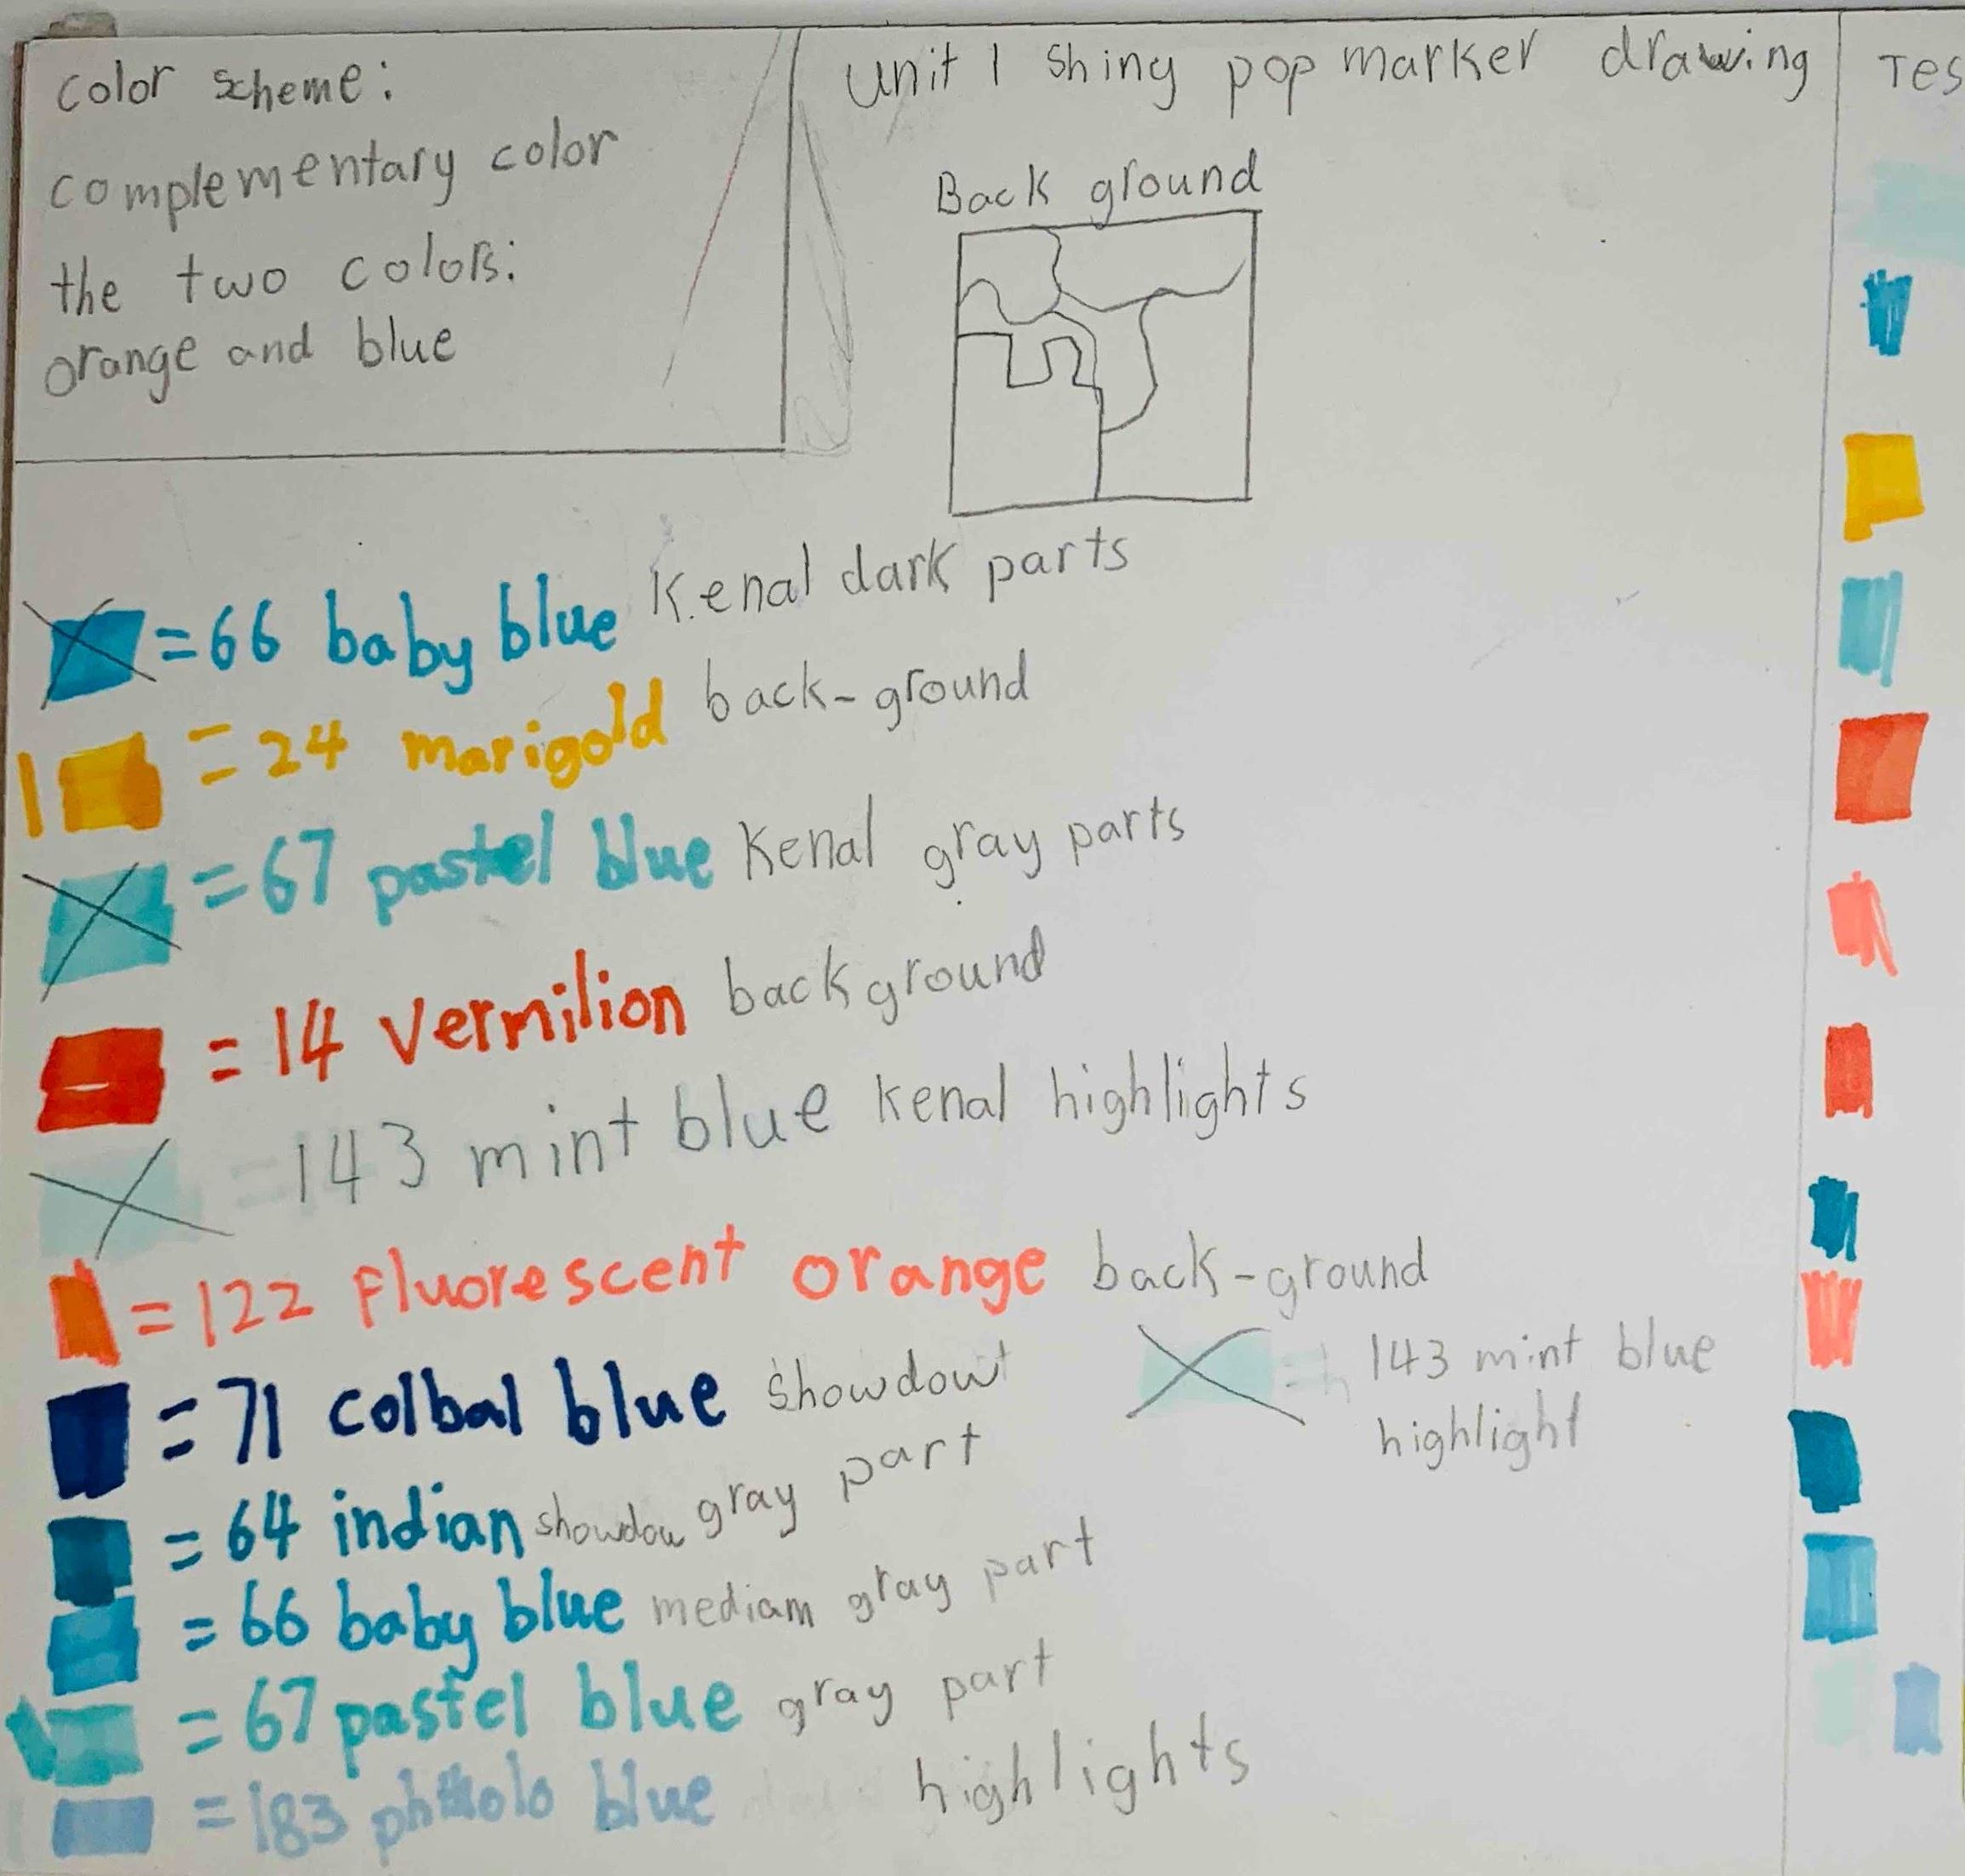 color scheme:
complementary color
the two colors:
orange and blue
unit 1 shiny pop marker drawing
Tes
Back ground
= 66 baby blue Kenal dark parts
= 24 marigold back-ground
= 67 pastel blue Kenal gray parts
= 14 vermilion background
= 143 mint blue kenal highlights
= 122 fluorescent orange back-ground
= 71 colbal blue showdow
= 143 mint blue
highlight
= 64 indian showdow gray part
= 66 baby blue mediam gray part
= 67 pastel blue gray part
= 183 phtholo blue highlights